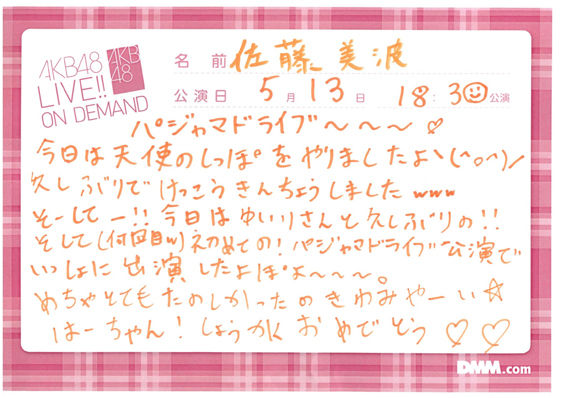 AKB48
LIVE!!
ON DEMAND
AKB
48
名前 佐藤美波
公演日 5月13日 18:30公演
パジャマドライブ〜〜〜♡
今日は天使のしっぽをやりましたよヽ(^o^)ノ
久しぶりでけっこうきんちょうしましたwww
そーしてー!!今日はゆいりさんと久しぶりの!!
そして(何回目w)初めての!パジャマドライブ公演で
いっしょに出演したよぽよ〜〜〜。
めちゃとてもたのしかったのきわみやーい☆
はーちゃん!しょうかくおめでとう♡♡
DMM.com